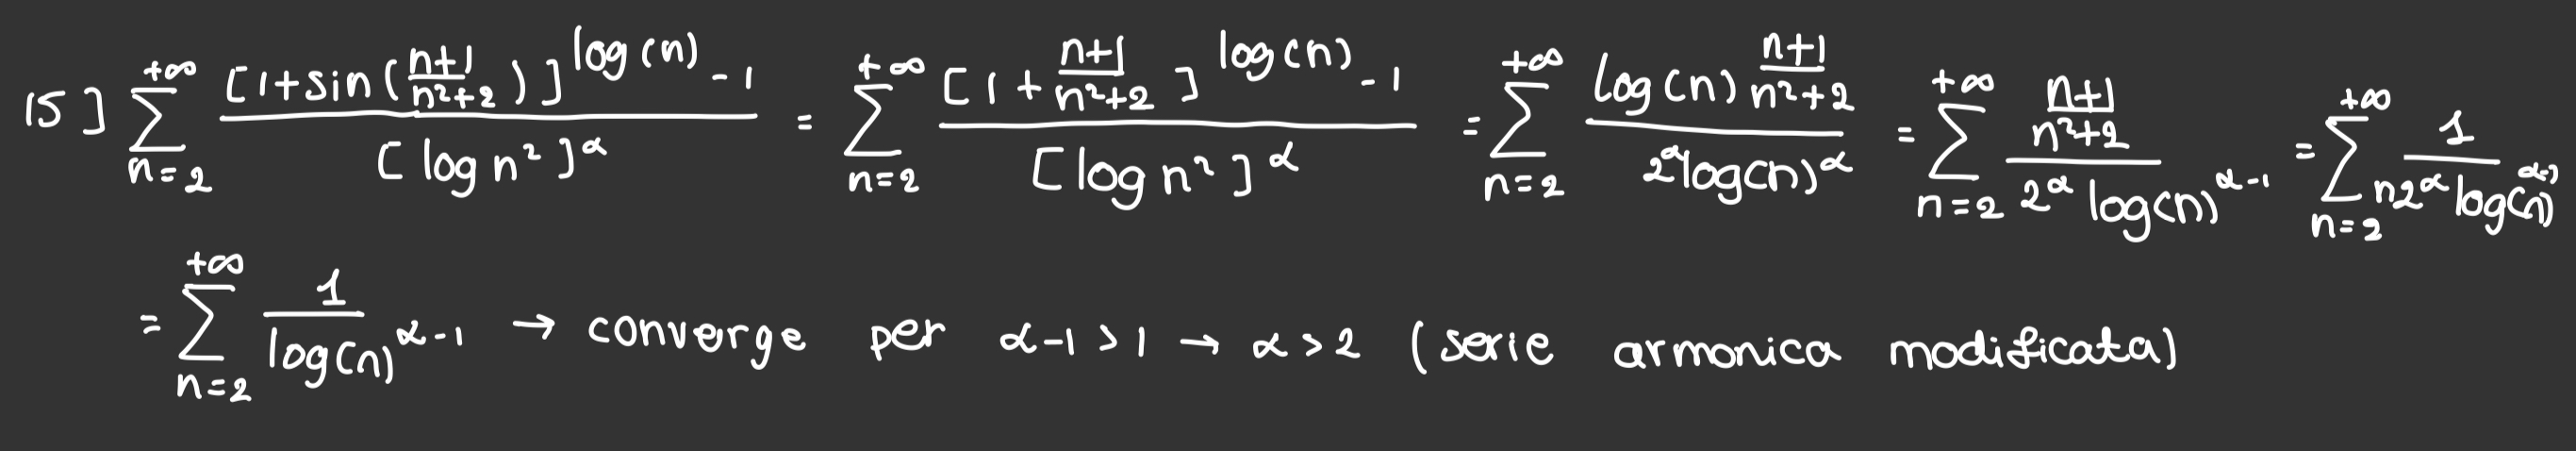 15] \sum_{n=2}^{+\infty} \frac{[1+\sin(\frac{n+1}{n^2+2})]^{\log(n)}-1}{[\log n^2]^\alpha} = \sum_{n=2}^{+\infty} \frac{[1+\frac{n+1}{n^2+2}]^{\log(n)}-1}{[\log n^2]^\alpha} = \sum_{n=2}^{+\infty} \frac{\log(n)\frac{n+1}{n^2+2}}{2^\alpha \log(n)^\alpha} = \sum_{n=2}^{+\infty} \frac{\frac{n+1}{n^2+2}}{2^\alpha \log(n)^{\alpha-1}} = \sum_{n=2}^{+\infty} \frac{1}{n2^\alpha \log(n)^{\alpha-1}}
= \sum_{n=2}^{+\infty} \frac{1}{\log(n)^{\alpha-1}} → converge per α-1>1 → α>2 (serie armonica modificata)